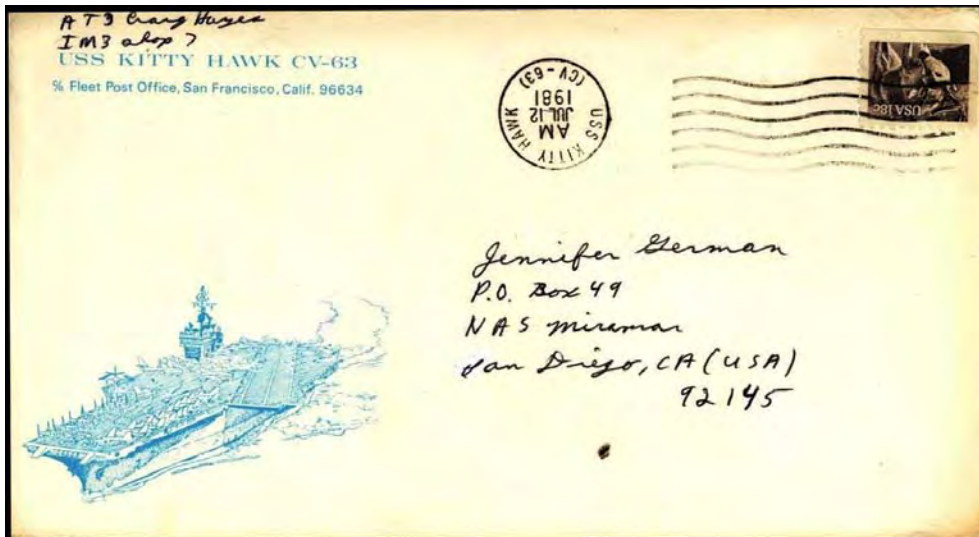 AT3 Craig Hayes
IM3 shop 7
USS KITTY HAWK CV-63
℅ Fleet Post Office, San Francisco, Calif. 96634
USS KITTY HAWK
AM
JUL 12
1981
(CV-63)
USA 18c
Jennifer German
P.O. Box 49
NAS Miramar
San Diego, CA (USA)
92145